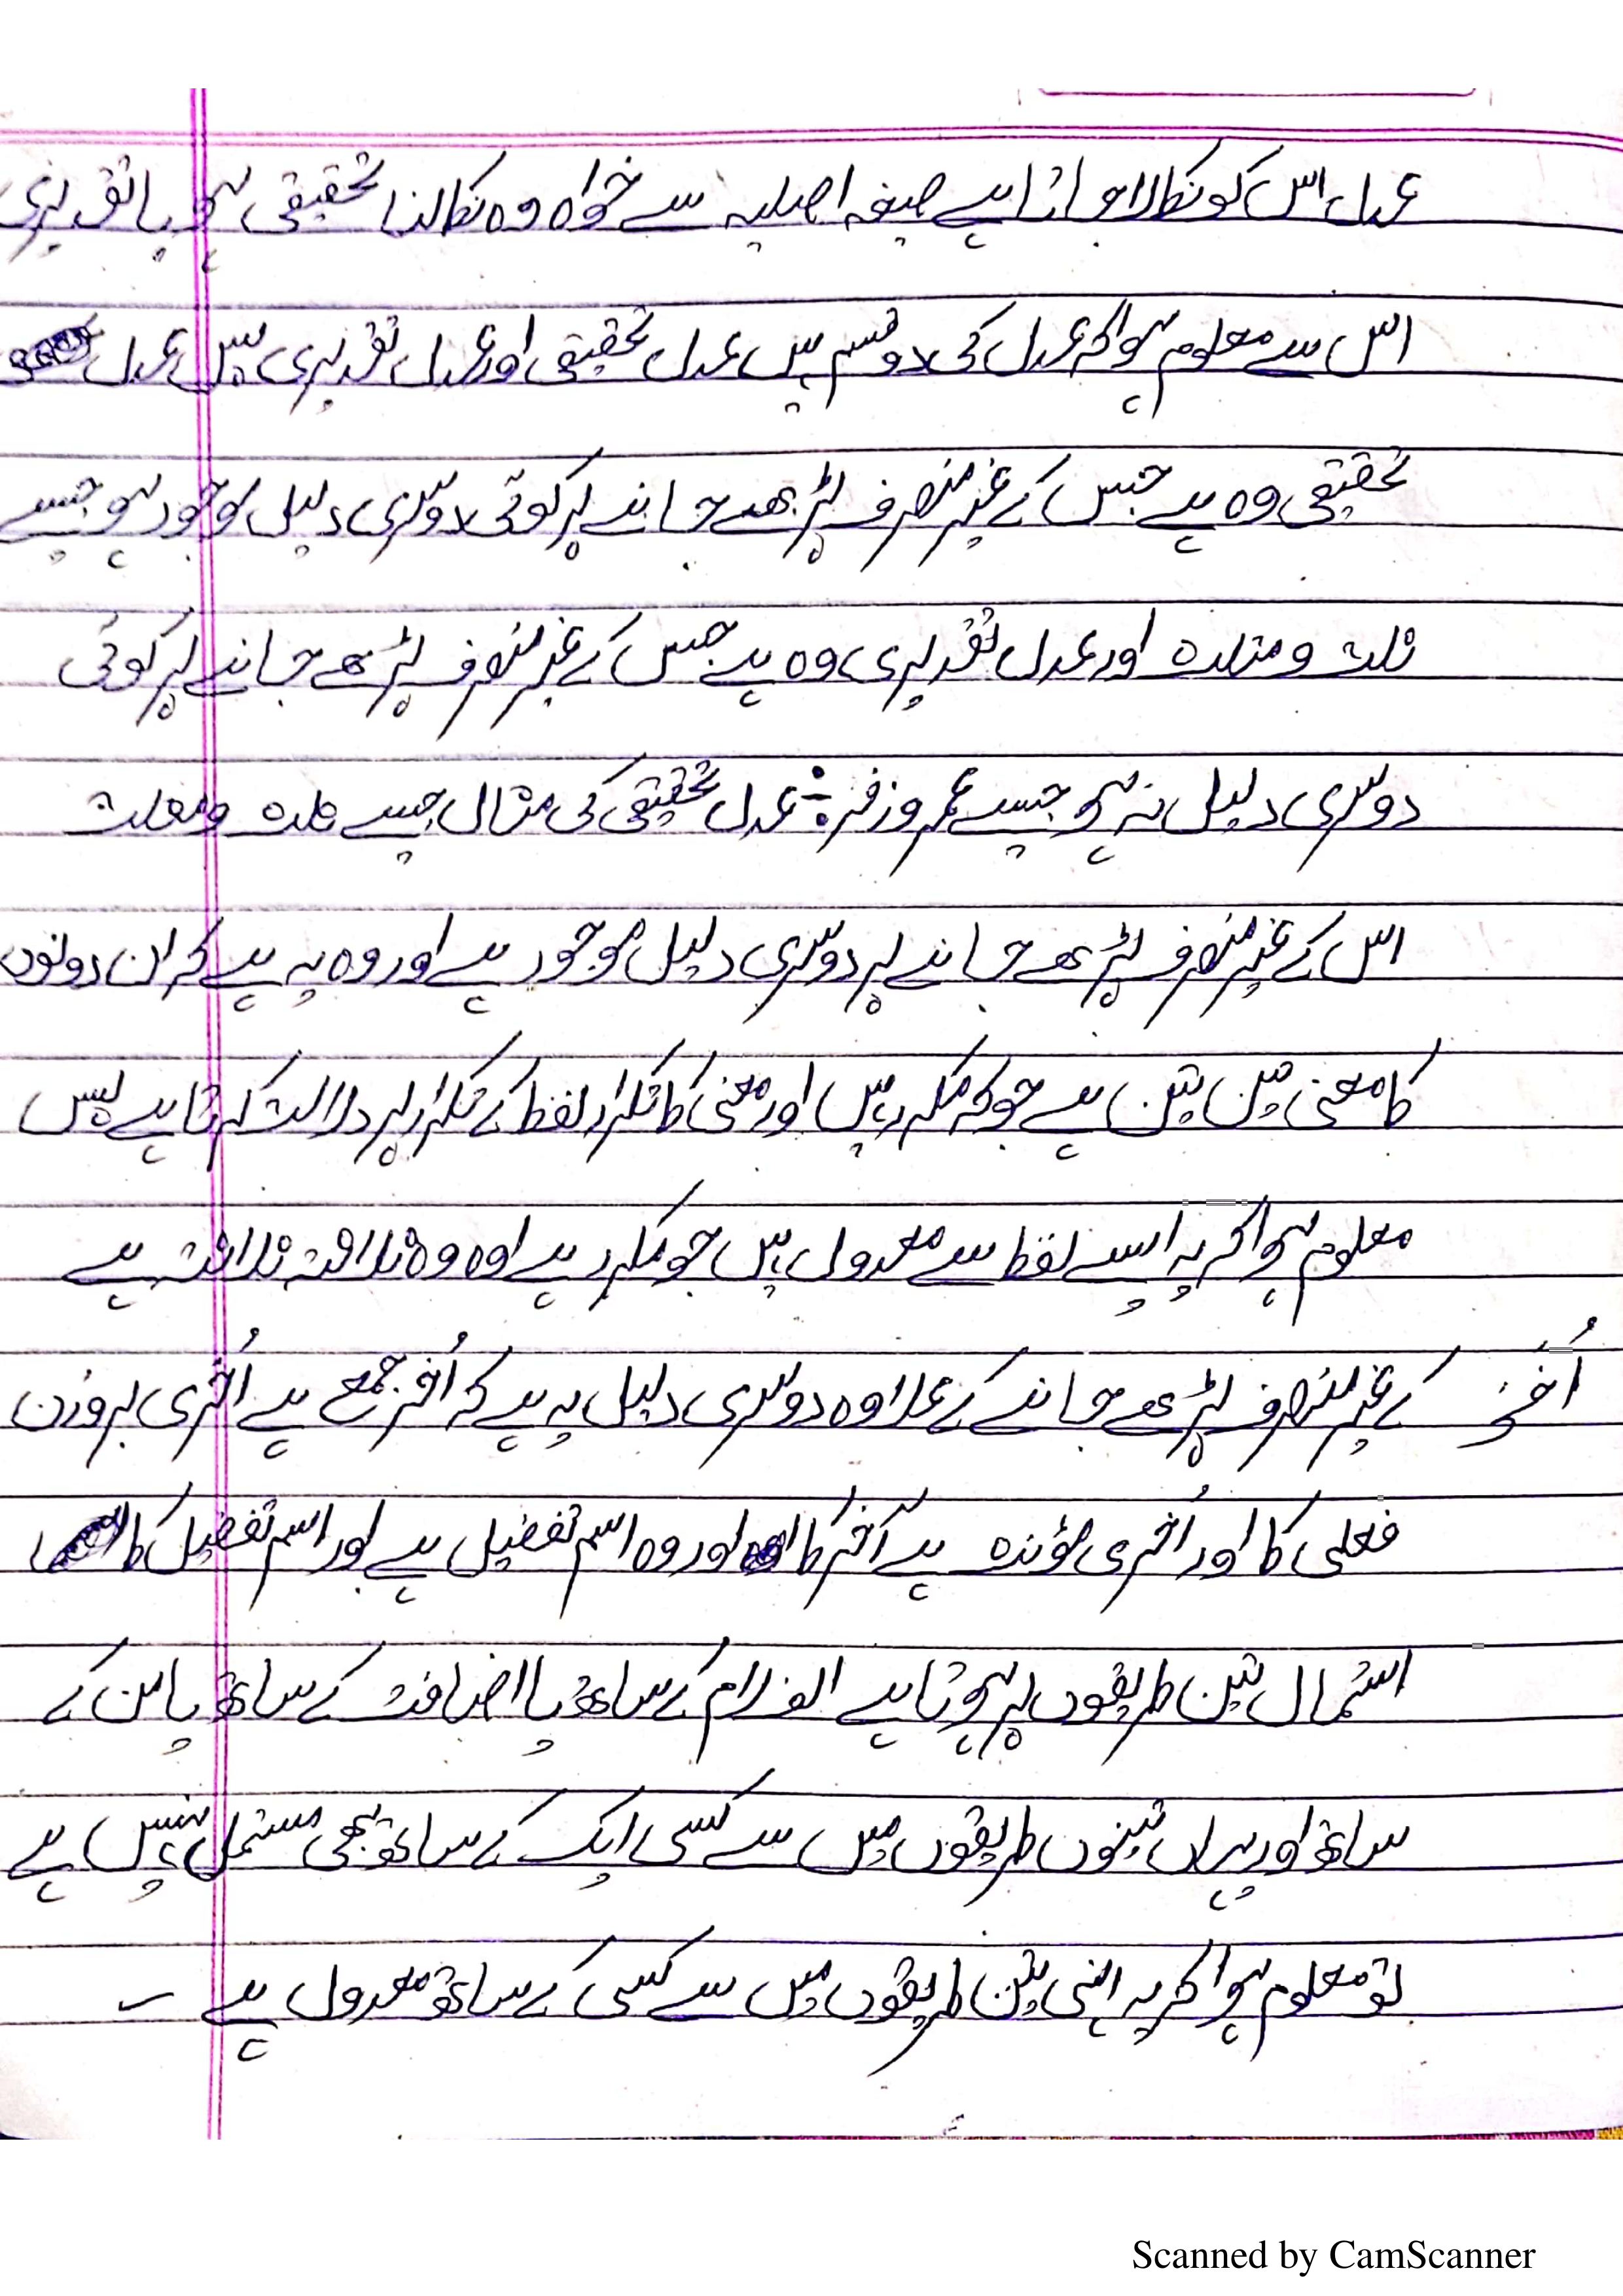 عدل اس کو نکالا جاتا ہے صیغہ اصلیہ سے خواہ وہ نکالنا تحقیقی ہو یا تقدیری
اس سے معلوم ہوا کہ عدل کی دو قسم ہیں عدل تحقیقی اور عدل تقدیری پس عدل
تحقیقی وہ ہے جس کے غیر منصرف پڑھے جانے پر کوئی دوسری دلیل موجود ہو جیسے
ثلث و مثلث اور عدل تقدیری وہ ہے جس کے غیر منصرف پڑھے جانے پر کوئی
دوسری دلیل نہ ہو جیسے عمر و زفر ÷ عدل تحقیقی کی مثال جیسے ثلث و مثلث
اس کے غیر منصرف پڑھے جانے پر دوسری دلیل موجود ہے اور وہ یہ ہے کہ ان دونوں
کا معنی تین تین ہے جو کہ مکرر ہیں اور معنی کا تکرار لفظ کے تکرار پر دلالت کرتا ہے پس
معلوم ہوا کہ یہ ایسے لفظ سے معدول ہیں جو مکرر ہے اوہ وہ ثلاثۃ ثلاثۃ ہے
اُخر کے غیر منصرف پڑھے جانے کے علاوہ دوسری دلیل یہ ہے کہ اُخر جمع ہے اُخری بروزن
فعلی کا اور اُخری مؤنث ہے آخر کا اور وہ اسم تفضیل ہے اور اسم تفضیل کا
استمال تین طریقوں پر ہوتا ہے الف لام کے ساتھ یا اضافت کے ساتھ یا من کے
ساتھ اور یہاں تینوں طریقوں میں سے کسی ایک کے ساتھ بھی مستمل نہیں ہے
تو معلوم ہوا کہ یہ انہی تین طریقوں میں سے کسی کے ساتھ معدول ہے ۔
Scanned by CamScanner